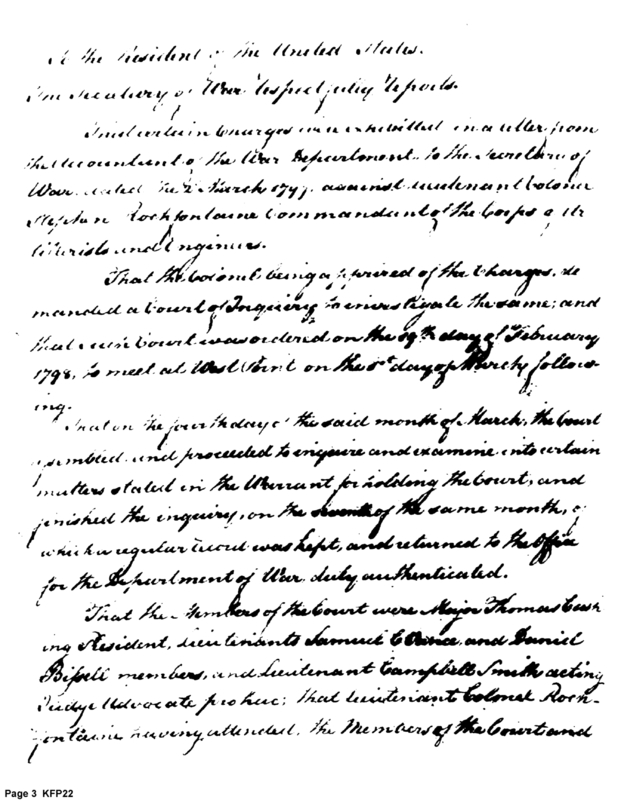 To the President of the United States.
The Secretary of War respectfully reports.
That certain Charges were exhibitted in a letter from
the Accountant of the War Department, to the Secretary of
War, dated the 2 March 1797, against Lieutenant Colonel
Stephen Rochfontaine Commandant of the Corps of Ar
tillerists and Engineers.
That the Colonel being apprised of the Charges, de
manded a Court of Inquiry to investigate the same; and
that such Court was ordered on the 19th day of February
1798, to meet at West Point on the 1st day of March follow-
ing.
That on the fourth day of the said month of March, the Court
assembled and proceeded to inquire and examine into certain
matters stated in the Warrant for holding the Court, and
finished the inquiry, on the of the same month, of
which a regular record was kept, and returned to the Office
for the Department of War duly authenticated.
That the Members of the Court were Major Thomas Cush
ing President, Lieutenants Samuel and Daniel
Bissell members, and Lieutenant Campbell Smith acting
Judge Advocate pro hac; that Lieutenant Colonel Roch-
fontaine having attended, the Members of the Court and
Page 3 KFP22